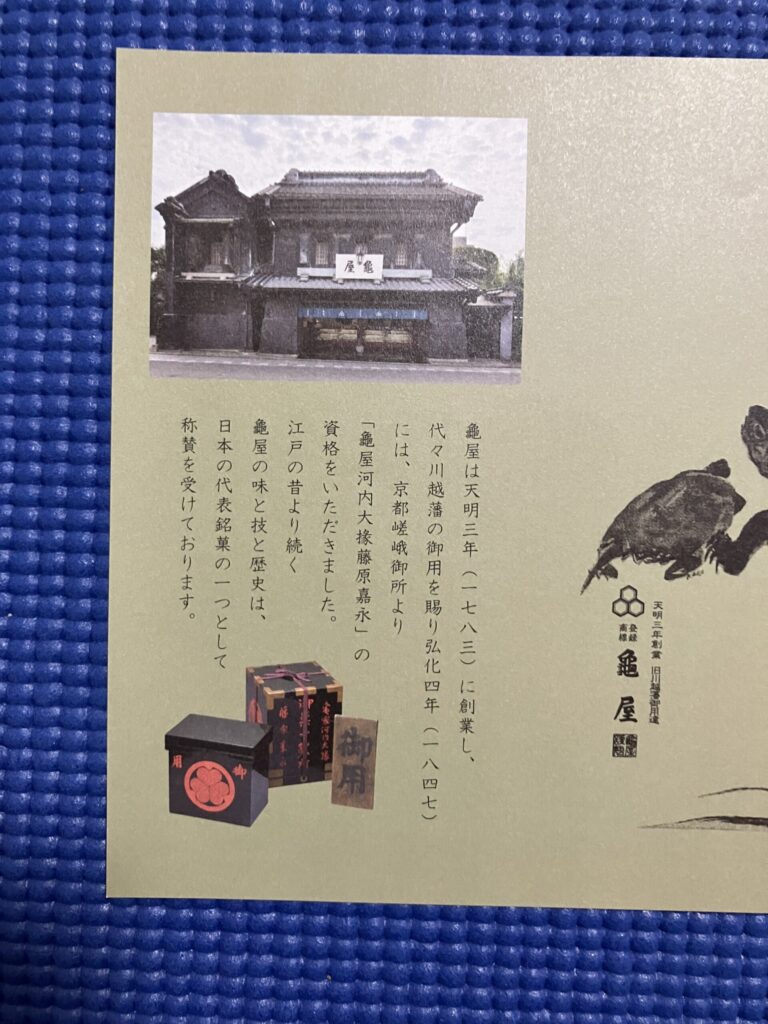 龜屋
龜屋は天明三年（一七八三）に創業し、
代々川越藩の御用を賜り弘化四年（一八四七）
には、京都嵯峨御所より
「龜屋河内大掾藤原嘉永」の
資格をいただきました。
江戸の昔より続く
龜屋の味と技と歴史は、
日本の代表銘菓の一つとして
称賛を受けております。
御用
御用
天明三年創業 旧川越藩御用達
登録
商標
龜屋